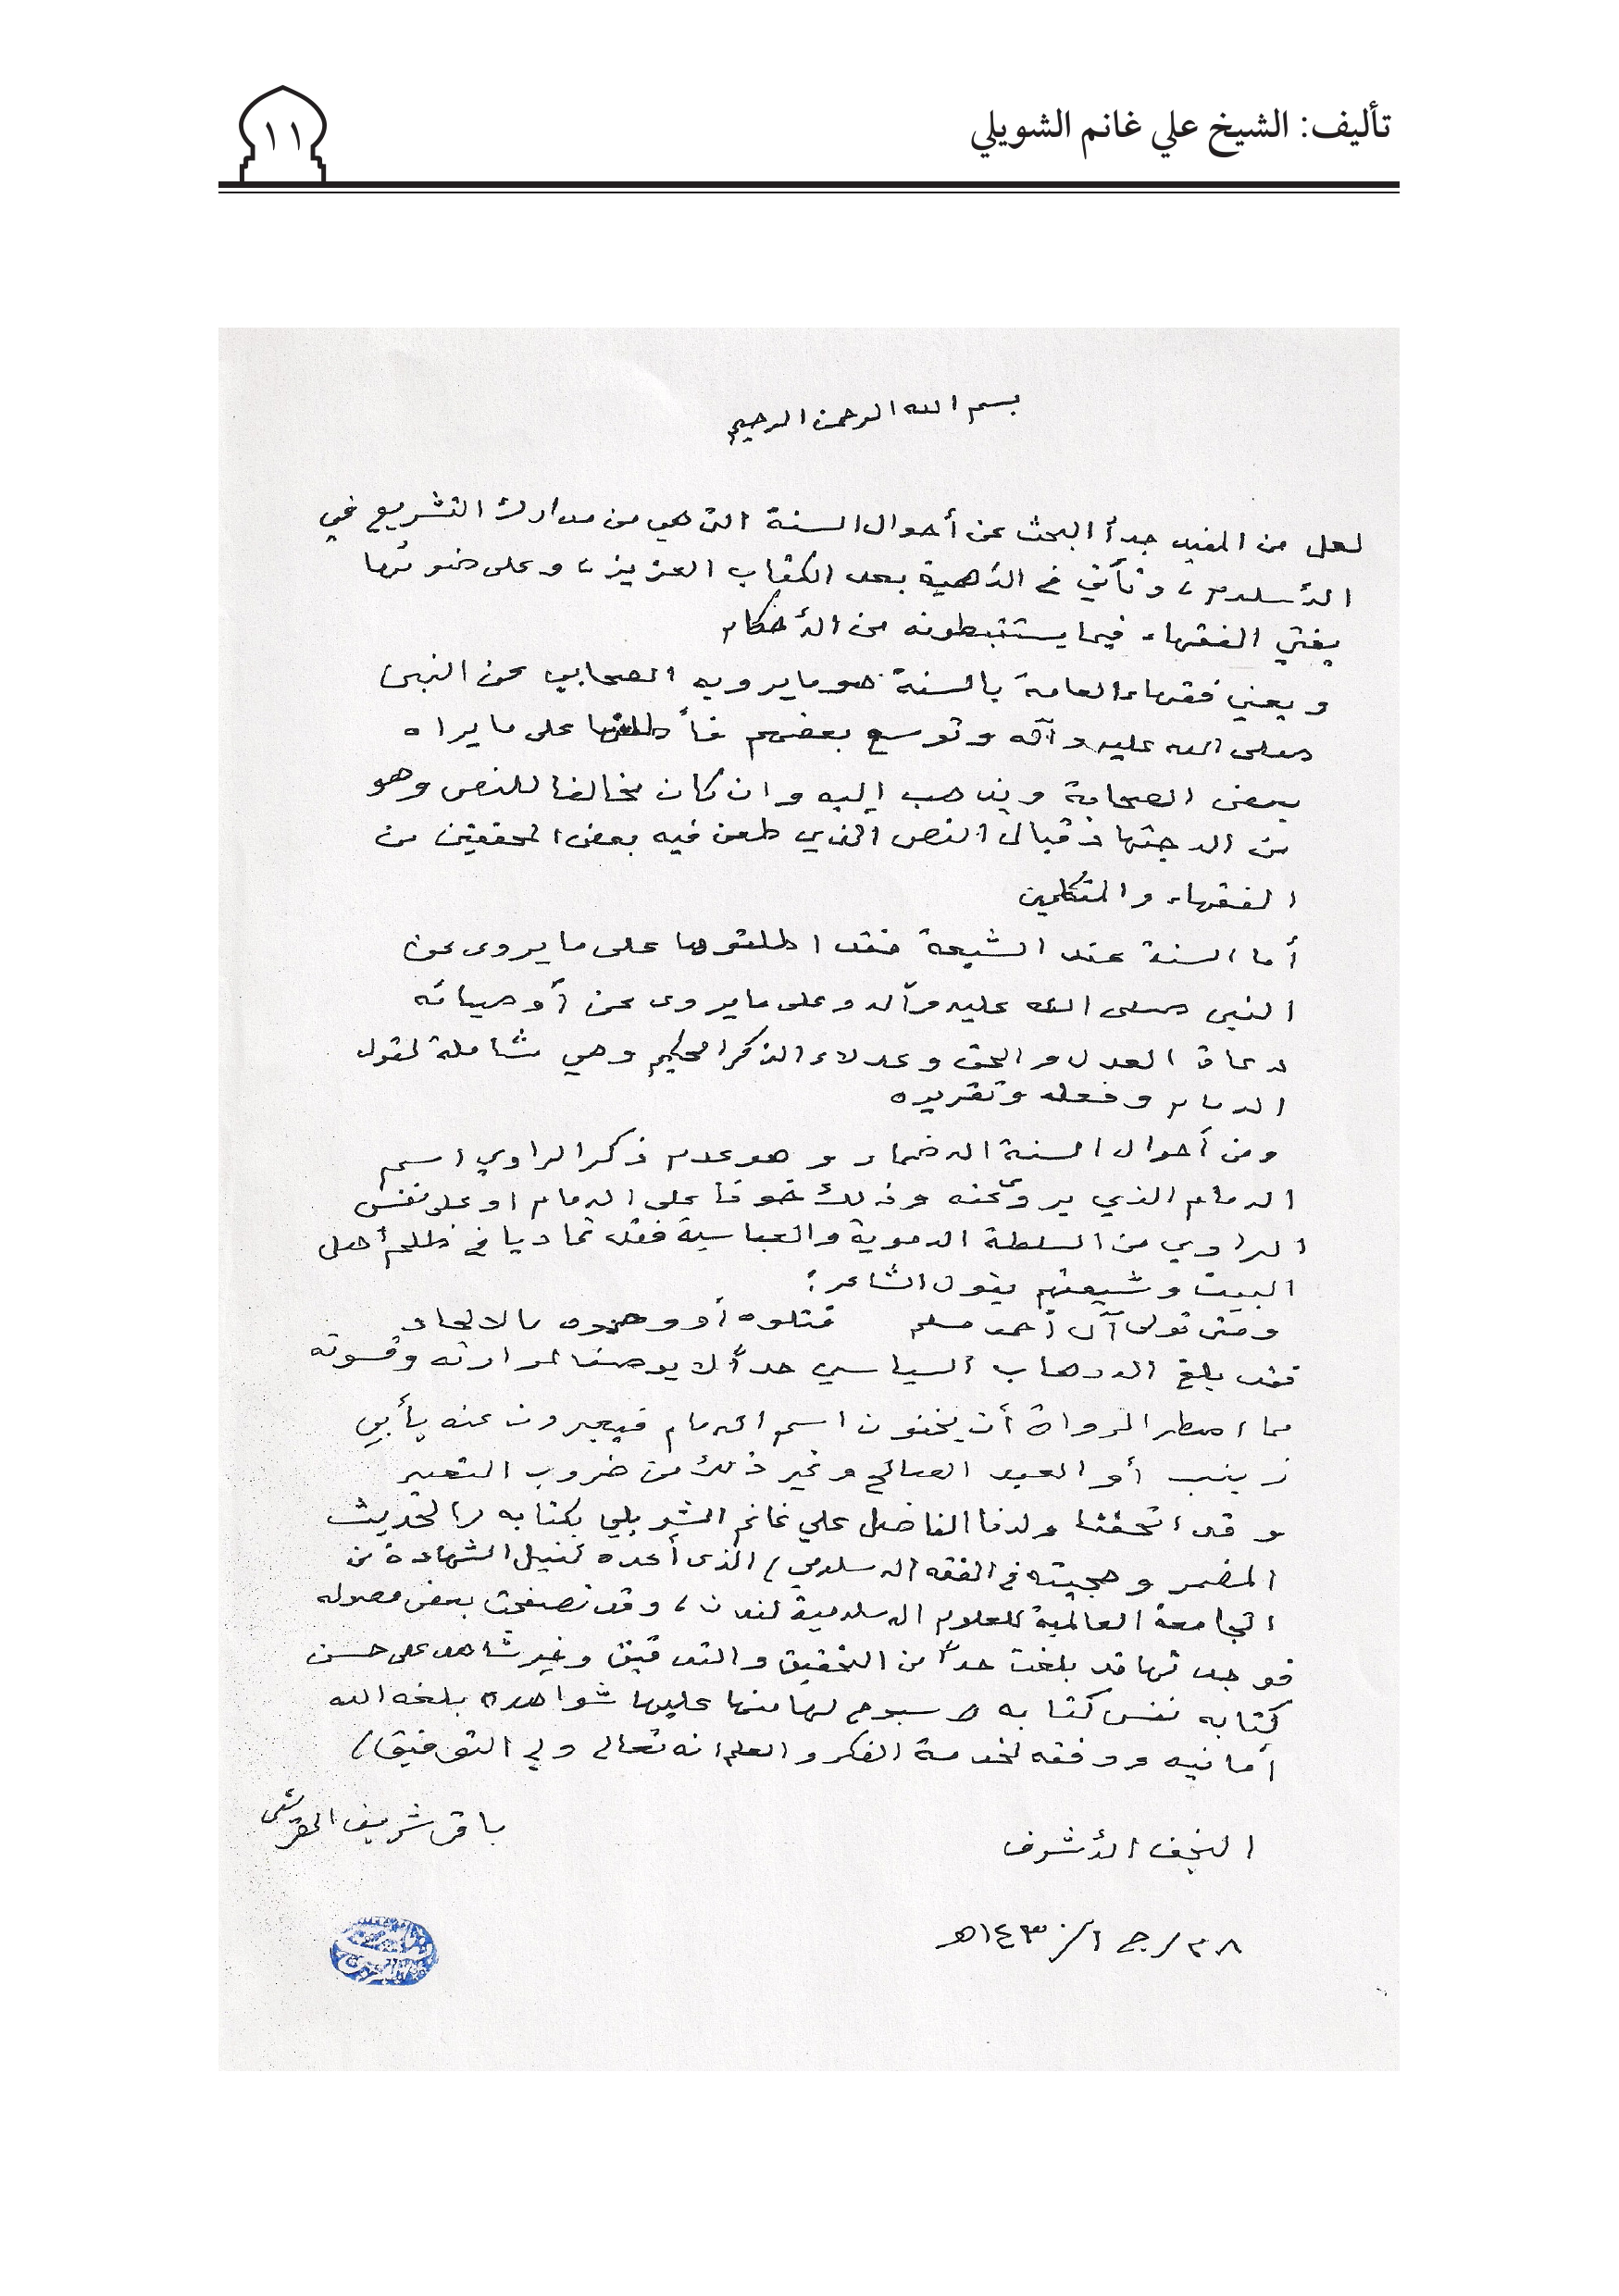 تأليف: الشيخ علي غانم الشويلي
١١
بسم الله الرحمن الرحيم
لعل من المفيد جداً البحث عن أحوال السنة التي هي من مدارك التشريع في
الأسلام، وتأتي في الأهمية بعد الكتاب العزيز، وعلى ضوئها
يفتي الفقهاء فيما يستنبطونه من الأحكام
ويعني فقهاء العامة بالسنة هو ما يرويه الصحابي عن النبي
صلى الله عليه وآله وتوسع بعضهم فأطلقها على ما يراه
بعض الصحابة ويذهب إليه وان كان مخالفا للنص وهو
من الاجتهاد قبال النص الذي طعن فيه بعض المحققين من
الفقهاء والمتكلمين
أما السنة عند الشيعة فقد اطلقوها على ما يروى عن
النبي صلى الله عليه وآله وعلى ما يروى عن أوصيائه
دعاة العدل والحق وعدلاء الذكر الحكيم وهي شاملة لقول
الامام وفعله وتقريره
ومن أحوال السنة الاضمار وهو عدم ذكر الراوي اسم
الامام الذي يروي عنه وذلك خوفا على الامام او على نفس
الراوي من السلطة الاموية والعباسية فقد تماديا في ظلم أهل
البيت وشيعتهم يقول الشاعر:
ومتى تولى آل أحمد مسلم قتلوه أو وصموه بالالحاد
فقد بلغ الارهاب السياسي حداً لا يوصف لمرارته وقسوته
مما اضطر الرواة أن يخفون اسم الامام فيعبرون عنه بأبي
زينب أو العبد الصالح وغير ذلك من ضروب التعبير
وقد اتحفنا ولدنا الفاضل علي غانم الشويلي بكتابه (الحديث
المضمر وحجيته في الفقه الاسلامي) الذي أعده لنيل الشهادة من
الجامعة العالمية للعلوم الاسلامية لندن، وقد تصفحت بعض فصوله
فوجدتها قد بلغت حداً من التحقيق والتدقيق وخير شاهد على حسن
كتابه نفس كتابه و سبوح لها منها عليها شواهد، بلغه الله
أمانيه ووفقه لخدمة الفكر والعلم انه تعالى ولي التوفيق
باقر شريف القرشي
النجف الأشرف
٢٨/ج١/١٤٣٠هـ